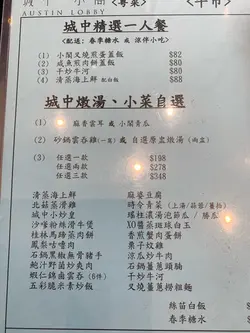 <粵菜>
AUSTIN LOBBY
城中精選一人餐
<配送: 春季糖水 或 涼伴小吃>
(1) 小閣叉燒煎蛋飯 $82
(2) 咸魚煎肉餅蓋飯 $80
(3) 干炒牛河 $80
(4) 清蒸海上鮮 配白飯 $88
城中燉湯、小菜自選
(1) 麻香雲耳 或 小閣青瓜
(2) 砂鍋雲吞雞(一窩) 或 自選原盅燉湯(兩盅)
(3) 任選一款 $198
任選兩款 $278
任選三款 $348
清蒸海上鮮
北菇蒸滑雞
城中小炒皇
沙嗲粉絲滑牛煲
桂林馬蹄蒸肉餅
鳳梨咕嚕肉
石鍋黑椒無骨豬手
鮑汁野菌炒爽肉
蝦仁錦鹵雲吞(6件)
五彩脆米素炒飯
麻婆豆腐
時令青菜 (上湯/蒜蓉/薑汁)
瑤柱濃湯泡節瓜 / 勝瓜
XO醬蒸斑球白玉
香煎蟹肉蛋餅
栗子炆雞
涼瓜炒牛肉
石鍋薑蔥頭腩
干炒牛河
叉燒薑蔥撈粗麵
絲苗白飯
春季糖水